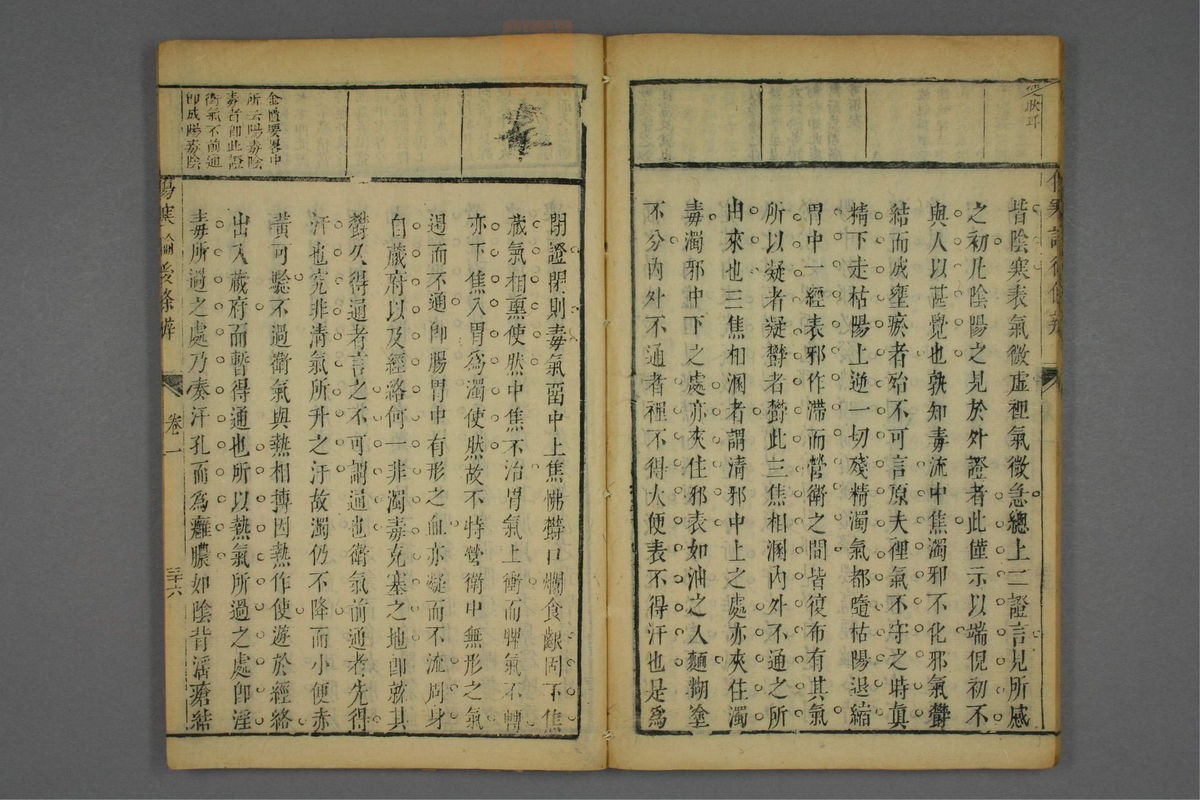 皆陰寒表氣微虛裡氣微急總上二證言見所感
之初凡陰陽之見於外證者此僅示以端倪初不
與人以甚覺也孰知毒流中焦濁邪不化邪氣欝
結而成壅瘀者殆不可言原夫裡氣不守之時真
精下走枯陽上逆一切殘精濁氣都隨枯陽退縮
胃中一經表邪作滯而營衛之間皆復布有其氣
所以凝者凝欝者欝此三焦相溷內外不通之所
由來也三焦相溷者謂清邪中上之處亦夾住濁
毒濁邪中下之處亦夾住邪表如油之入麵糊塗
不分內外不通者裡不得大便表不得汗也是為
閉證閉則毒氣畱中上焦怫欝口爛食齦固下焦
蔵氣相熏使然中焦不治胃氣上衝而脾氣不轉
亦下焦入胃為濁使然故不特營衛中無形之氣
遏而不通卽腸胃中有形之血亦凝而不流周身
自蔵府以及經絡何一非濁毒充塞之地卽就其
欝久得通者言之不可謂通也衛氣前通者先得
汗也究非清氣所升之汙故濁仍不降而小便赤
黃可驗不過衛氣與熱相搏因熱作使遊於經絡
出入蔵府而暫得通也所以熱氣所過之處卽淫
毒所過之處乃奏汗孔而為癰膿如陰背濡瘡結
金匱要畧中
所云陽毒陰
毒者卽此證
衛氣不前通
卽成陽毒陰
傷寒論後條辨
卷一
三十六